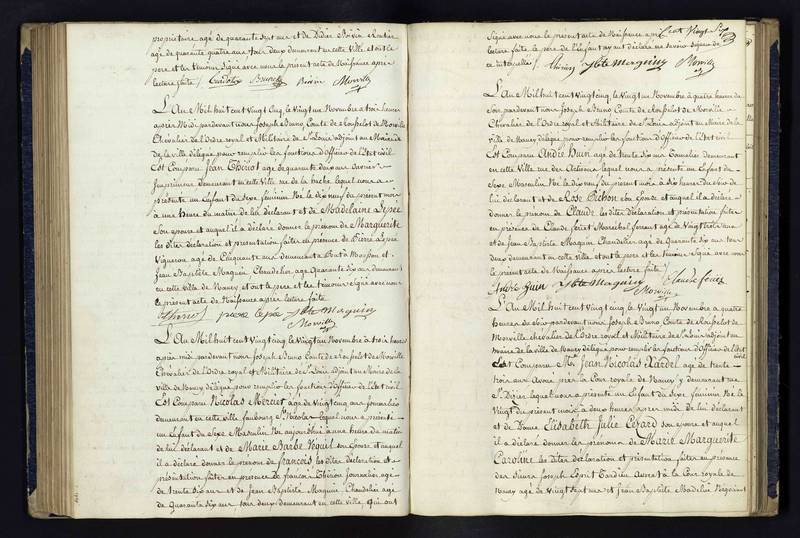 propriétaire agé de quarante sept ans et de Didier Poirin Rentier
agé de quarante quatre ans tous deux demeurant en cette Ville et ont le
pere et les témoins signé avec nous le présent acte de Naissance après
lecture faite /.
L'An Mil huit cent Vingt Cinq, le Vingt un Novembre à trois heures
après Midi pardevant nous Joseph Bruno Comte de Rouselot de Morville
Chevalier de l'Ordre royal et Militaire de St Louis adjoint au Maire de
de la ville délégué pour remplir les fonctions d'Officier de l'Etat civil
Est Comparu Jean Thiriot agé de quarante deux ans
demeurant en cette Ville rue de la hache lequel nous a
présenté un Enfant du Sexe féminin Né le dix neuf du présent mois
à une heure du matin de lui déclarant et de Madelaine Lépée
Son épouse et auquel il a déclaré donner le prénom de Marguerite
les dites déclaration et présentation faites en présence de Pierre Lépée
Vigneron agé de Cinquante ans demeurant à Pont à Mousson et
Jean Baptiste Maguin Chandelier agé Quarante dix ans demeurant
en cette ville de Nancy et ont le pere et les témoins signé avec nous
le présent acte de Naissance après lecture faite
pierre lépée Jbte Maguin
Morville
L'An Mil huit cent vingt cinq le vingt un Novembre à trois heures
après midi pardevant nous Joseph Bruno Comte de Rouselot de Morville
Chevalier de l'Ordre royal et Militaire de St Louis adjoint au Maire de la
ville de Nancy délégué pour remplir les fonctions d'officier de l'Etat civil
Est Comparu Nicolas Merciot agé de Vingt cinq ans journalier
demeurant en cette ville faubourg St Nicolas lequel nous a présenté
un Enfant du Sexe Masculin Né aujourd'hui à une heure du matin
de lui déclarant et de Marie Barbe Son épouse et auquel
il a déclaré donner le prénom de françois les dites déclaration et
présentation faites en présence de françois Thirion Journalier agé
de trente six ans et de Jean Baptiste Maguin Chandelier agé
de Quarante dix ans tous deux demeurant en cette ville, Et ont
Signé avec nous le présent acte de Naissance après
lecture faite, le pere de l'Enfant ayant déclaré ne savoir signer de
ce interpellé /. Thirion Jbte Maguin Morville
L'An Mil huit cent vingt cinq le vingt un Novembre à quatre heures du
Soir pardevant nous Joseph Bruno Comte de Rouselot de Morville
Chevalier de l'Ordre royal et Militaire de St Louis adjoint au Maire de la
ville de Nancy délégué pour remplir les fonctions d'Officier de l'Etat civil
Est Comparu André huin agé de trente six ans Tonnelier demeurant
en cette Ville lequel nous a présenté un Enfant du
Sexe Masculin Né le dix neuf du présent mois à dix heures du soir de
lui déclarant et de Rose Son Epouse et auquel il a déclaré
donner le prénom de Claude les dites déclaration et présentation faites
en présence de Claude ferant agé de Vingt trois ans
et de Jean Baptiste Maguin Chandelier agé de Quarante dix ans tous
deux demeurant en cette ville, et ont le pere et les témoins signé avec nous
le présent acte de Naissance après lecture faite
André huin Jbte Maguin Claude
Morville
L'An Mil huit cent vingt cinq le vingt un Novembre à quatre
heures du soir pardevant nous Joseph Bruno Comte de Rouselot de
Morville chevalier de l'Ordre royal et Militaire de St Louis adjoint au
Maire de la ville de Nancy délégué pour remplir les fonctions d'Officier de l'Etat
civil
Est Comparu Mr Jean Nicolas Xardel agé de trente
trois ans Avoué près la Cour royale de Nancy y demeurant rue
St Dizier lequel nous a présenté un Enfant du Sexe féminin Né le
Vingt du présent mois à deux heures après midi de lui déclarant
et de Dame Elisabeth Julie Son épouse et auquel
il a déclaré donner les prénoms de Marie Marguerite
Caroline les dites déclaration et présentation faites en présence
des Sieurs Joseph Esprit Tandieu avocat à la Cour royale de
Nancy agé de Vingt sept ans et Jean Baptiste Madelin Négociant